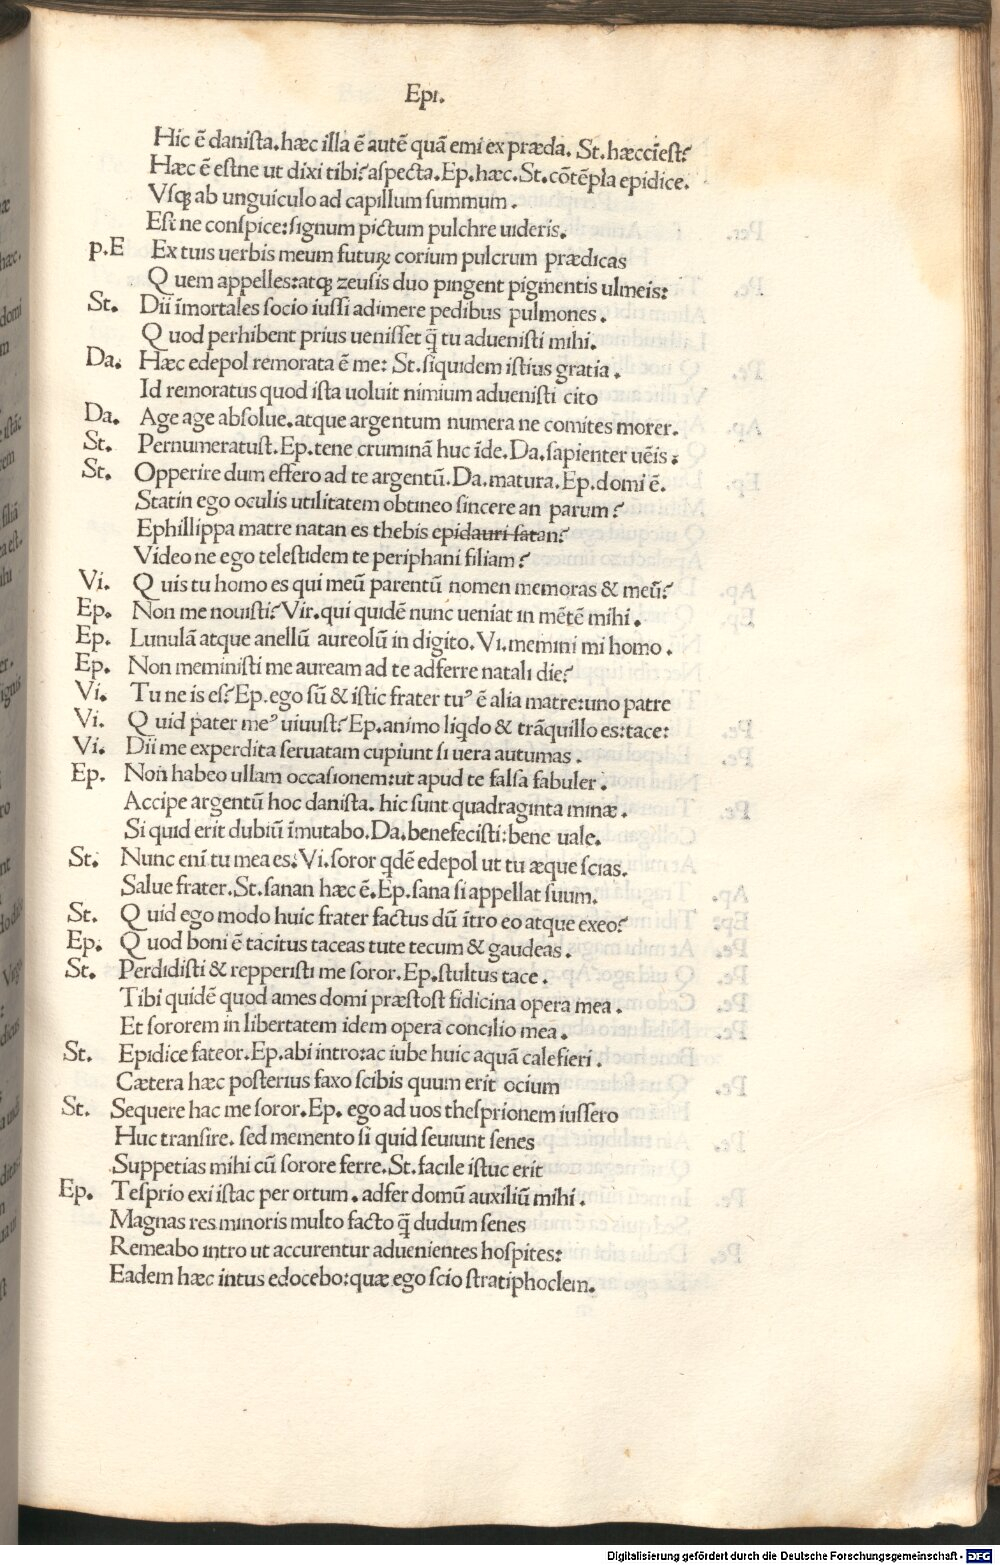 Epi.
Hic ē danista. hæc illa ē autē quā emi ex præda. St. hæccīest?
Hæc ē estne ut dixi tibi? aspecta. Ep. hæc. St. cōtēpla epidice.
Vsqꝫ ab unguiculo ad capillum summum.
Est ne conspice: signum pictum pulchre uideris.
p.E Ex tuis uerbis meum futuꝝ corium pulcrum prædicas
Q uem appelles: atqꝫ zeusis duo pingent pigmentis ulmeis:
St. Dii īmortales socio iussi adimere pedibus pulmones.
Q uod perhibent prius uenisset q̄ tu aduenisti mihi.
Da. Hæc edepol remorata ē me: St. siquidem istius gratia.
Id remoratus quod ista uoluit nimium aduenisti cito
Da. Age age absolue. atque argentum numera ne comites morer.
St. Pernumeratust. Ep. tene cruminā huc īde. Da. sapienter uēis:
St. Opperire dum effero ad te argentū. Da. matura. Ep. domi ē.
Statin ego oculis utilitatem obtineo sincere an parum?
Ephillippa matre natan es thebis epidauri satan?
Video ne ego telestidem te periphani filiam?
Vi. Q uis tu homo es qui meū parentū nomen memoras & meū?
Ep. Non me nouisti? Vir. qui quidē nunc ueniat in mētē mihi.
Ep. Lunulā atque anellū aureolū in digito. Vi. memini mi homo.
Ep. Non meministi me auream ad te adferre natali die?
Vi. Tu ne is es? Ep. ego sū & istic frater tuꝰ ē alia matre: uno patre
Vi. Q uid pater meꝰ uiuust? Ep. animo liqdo & trāquillo es: tace:
Vi. Dii me experdita seruatam cupiunt si uera autumas.
Ep. Non habeo ullam occasionem: ut apud te falsa fabuler.
Accipe argentū hoc danista. hic sunt quadraginta minæ.
Si quid erit dubiū īmutabo. Da. benefecisti: bene uale.
St. Nunc enī tu mea es: Vi. soror qdē edepol ut tu æque scias.
Salue frater. St. sanan hæc ē. Ep. sana si appellat suum.
St. Q uid ego modo huic frater factus dū ītro eo atque exeo?
Ep. Q uod boni ē tacitus taceas tute tecum & gaudeas.
St. Perdidisti & repperisti me soror. Ep. stultus tace.
Tibi quidē quod ames domi præstost fidicina opera mea.
Et sororem in libertatem idem opera concilio meā.
St. Epidice fateor. Ep. abi intro: ac iube huic aquā calefieri.
Cætera hæc posterius faxo scibis quum erit ocium
St. Sequere hac me soror. Ep. ego ad uos thesprionem iussero
Huc transire. sed memento si quid seuiunt senes
Suppetias mihi cū sorore ferre. St. facile istuc erit
Ep. Tesprio exi istac per ortum. adfer domū auxiliū mihi.
Magnas res minoris multo facto q̄ dudum senes
Remeabo intro ut accurentur aduenientes hospites:
Eadem hæc intus edocebo: quæ ego scio stratiphoclem.
Digitalisierung gefördert durch die Deutsche Forschungsgemeinschaft - DFG